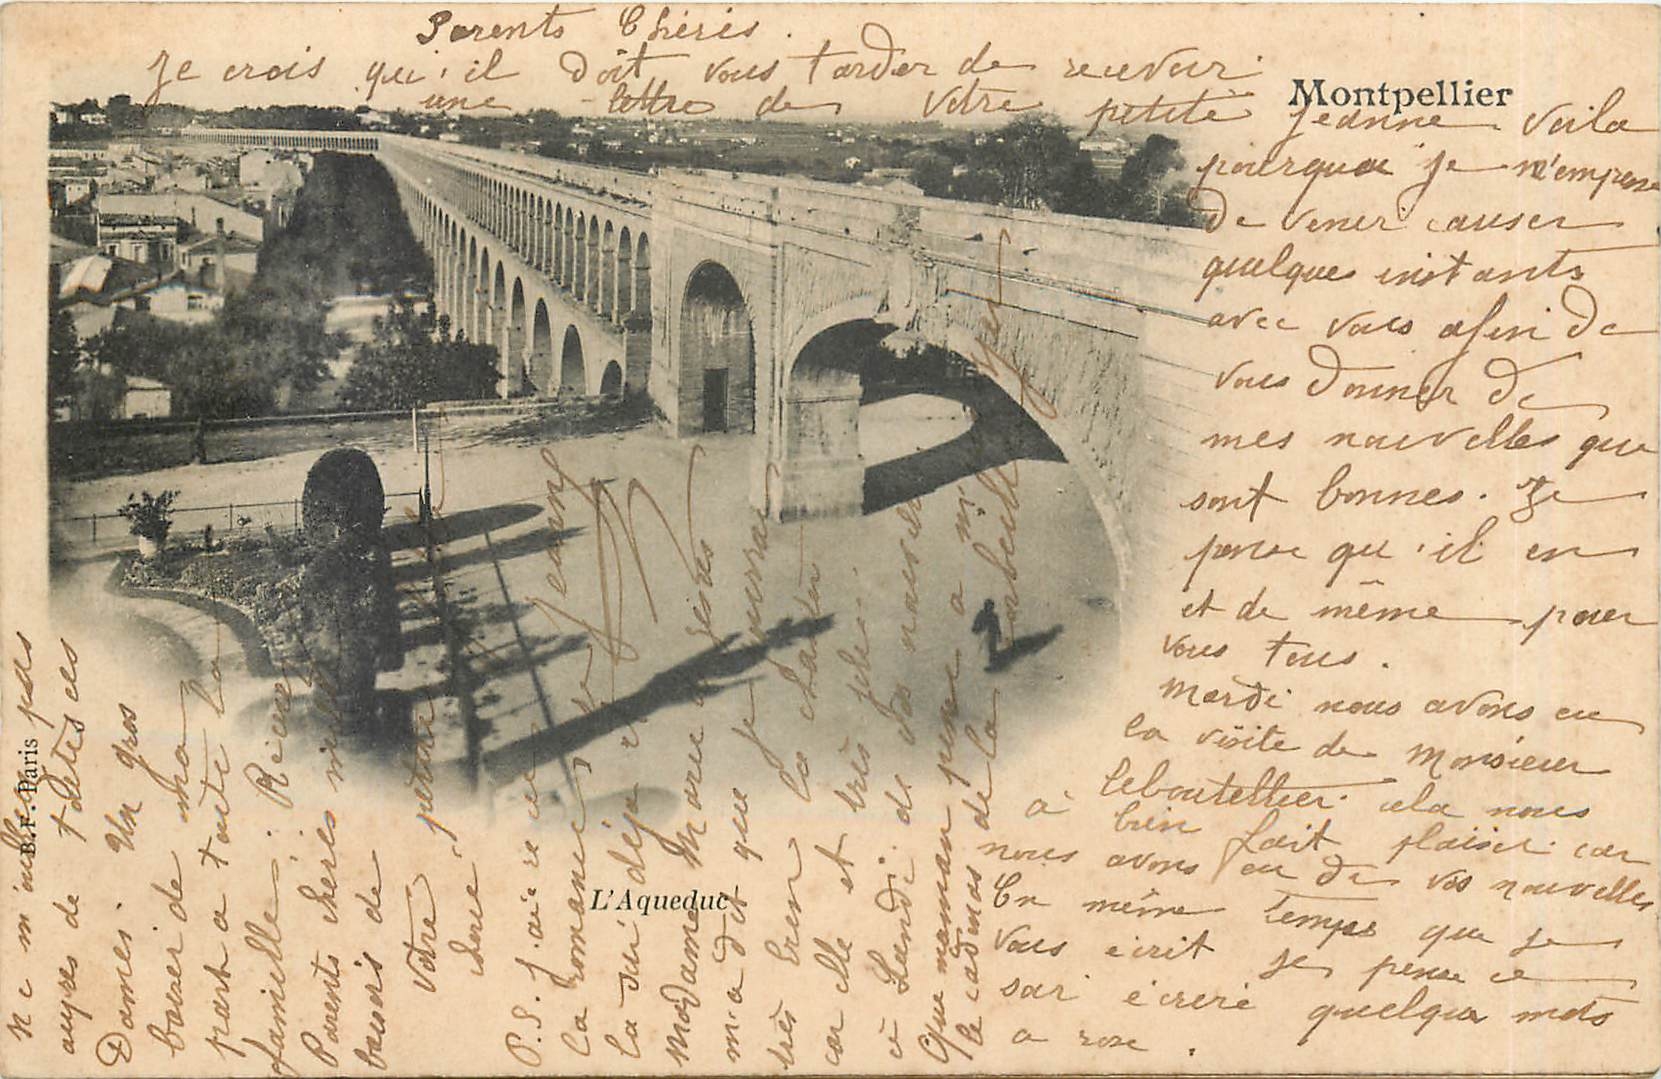 Parents Chéris.
Je crois qu'il doit vous tarder de recevoir
une lettre de votre petite Jeanne voila
Montpellier
pourquoi je m'empresse
de venir causer
quelques instants
avec vous afin de
vous donner de
mes nouvelles que
sont bonnes. Je
pense qu'il en
et de même pour
vous tous.
Mardi nous avons eu
la visite de Monsieur
Leboutellier. cela nous
a bien fait plaisir car
nous avons eu de vos nouvelles
En même temps que je
vous ecrit je pense ce
soir écrire quelque mots
a rose.
ne m'oubliez pas
aupres de toutes ces
Dames. Un gros
baiser de ma
part a toute la
famille. Recevez
Parents chéris mille
baisers de
votre petite
Jeanne
P.S. j'ai re
la romance
la suis déja
Madame Marie
m'a dit que je pourrai
très bien la chanter
car elle et très jolie.
de vos nouvelles
Que maman pense a m'
le cadenas de la corbeille
L'Aqueduc
B.F. Paris